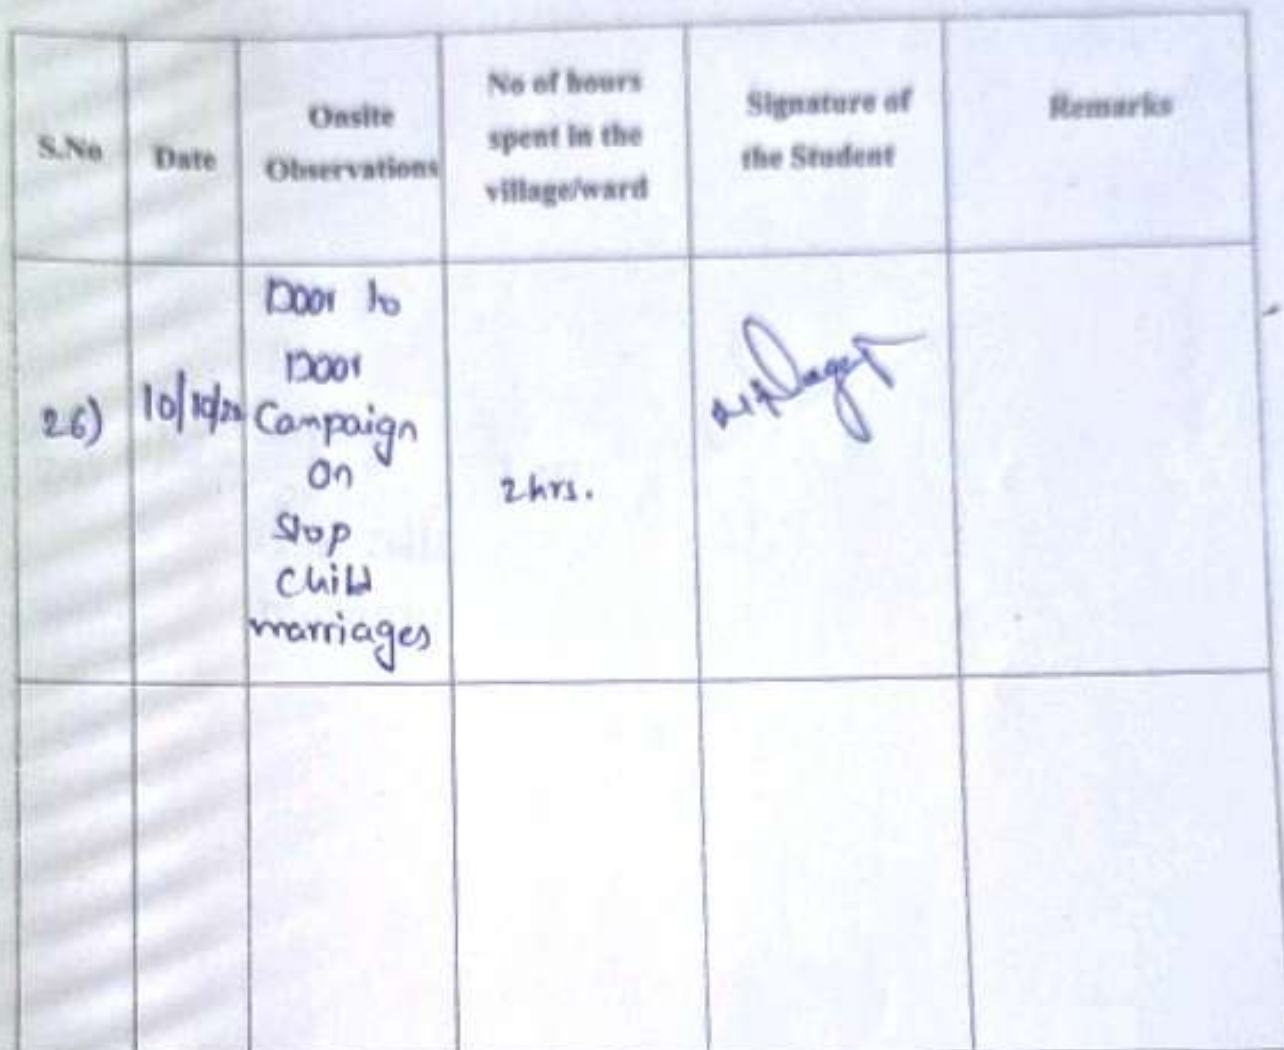 S.No
Date
Onsite
Observations
No of hours
spent in the
village/ward
Signature of
the Student
Remarks
26)
Door to
Door
Campaign
On
Stop
Child
marriages
2hrs.